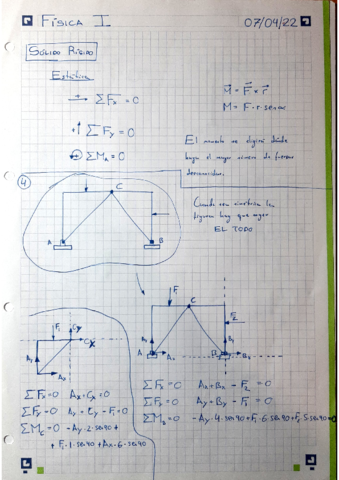 FÍSICA I
07/04/22
SÓLIDO RÍGIDO
Estática
ΣFx = 0
ΣFy = 0
ΣMA = 0
M = F × r
M = F · r · senα
El momento se elegirá dónde
haya el mayor número de fuerzas
desconocidas.
4
C
A
B
Cuando sea simétrica la
figura hay que coger
EL TODO
F1
Cy
Cx
Ay
Ax
F1
C
F2
Ay
A
Ax
B
By
Bx
ΣFx=0 Ax+Cx=0
ΣFy=0 Ay+Cy-F1=0
ΣMC=0 -Ay·2·sen90+
+F1·1·sen90+Ax·6·sen90
ΣFx=0 Ax+Bx-F2=0
ΣFy=0 Ay+By-F1=0
ΣMB=0 -Ay·4·sen90+F1·6·sen90+F2·5·sen90=0